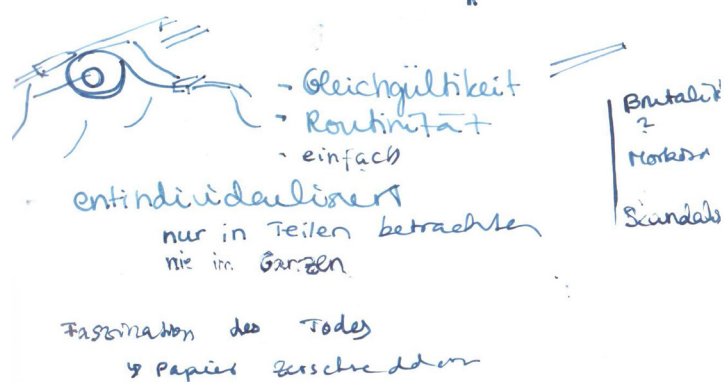 - Gleichgültigkeit
- Routinität
- einfach
entindividualisiert
nur in Teilen betrachten
nie im Ganzen
Faszination des Todes
↳ Papier zerschreddern
Brutalit
?
Skandal